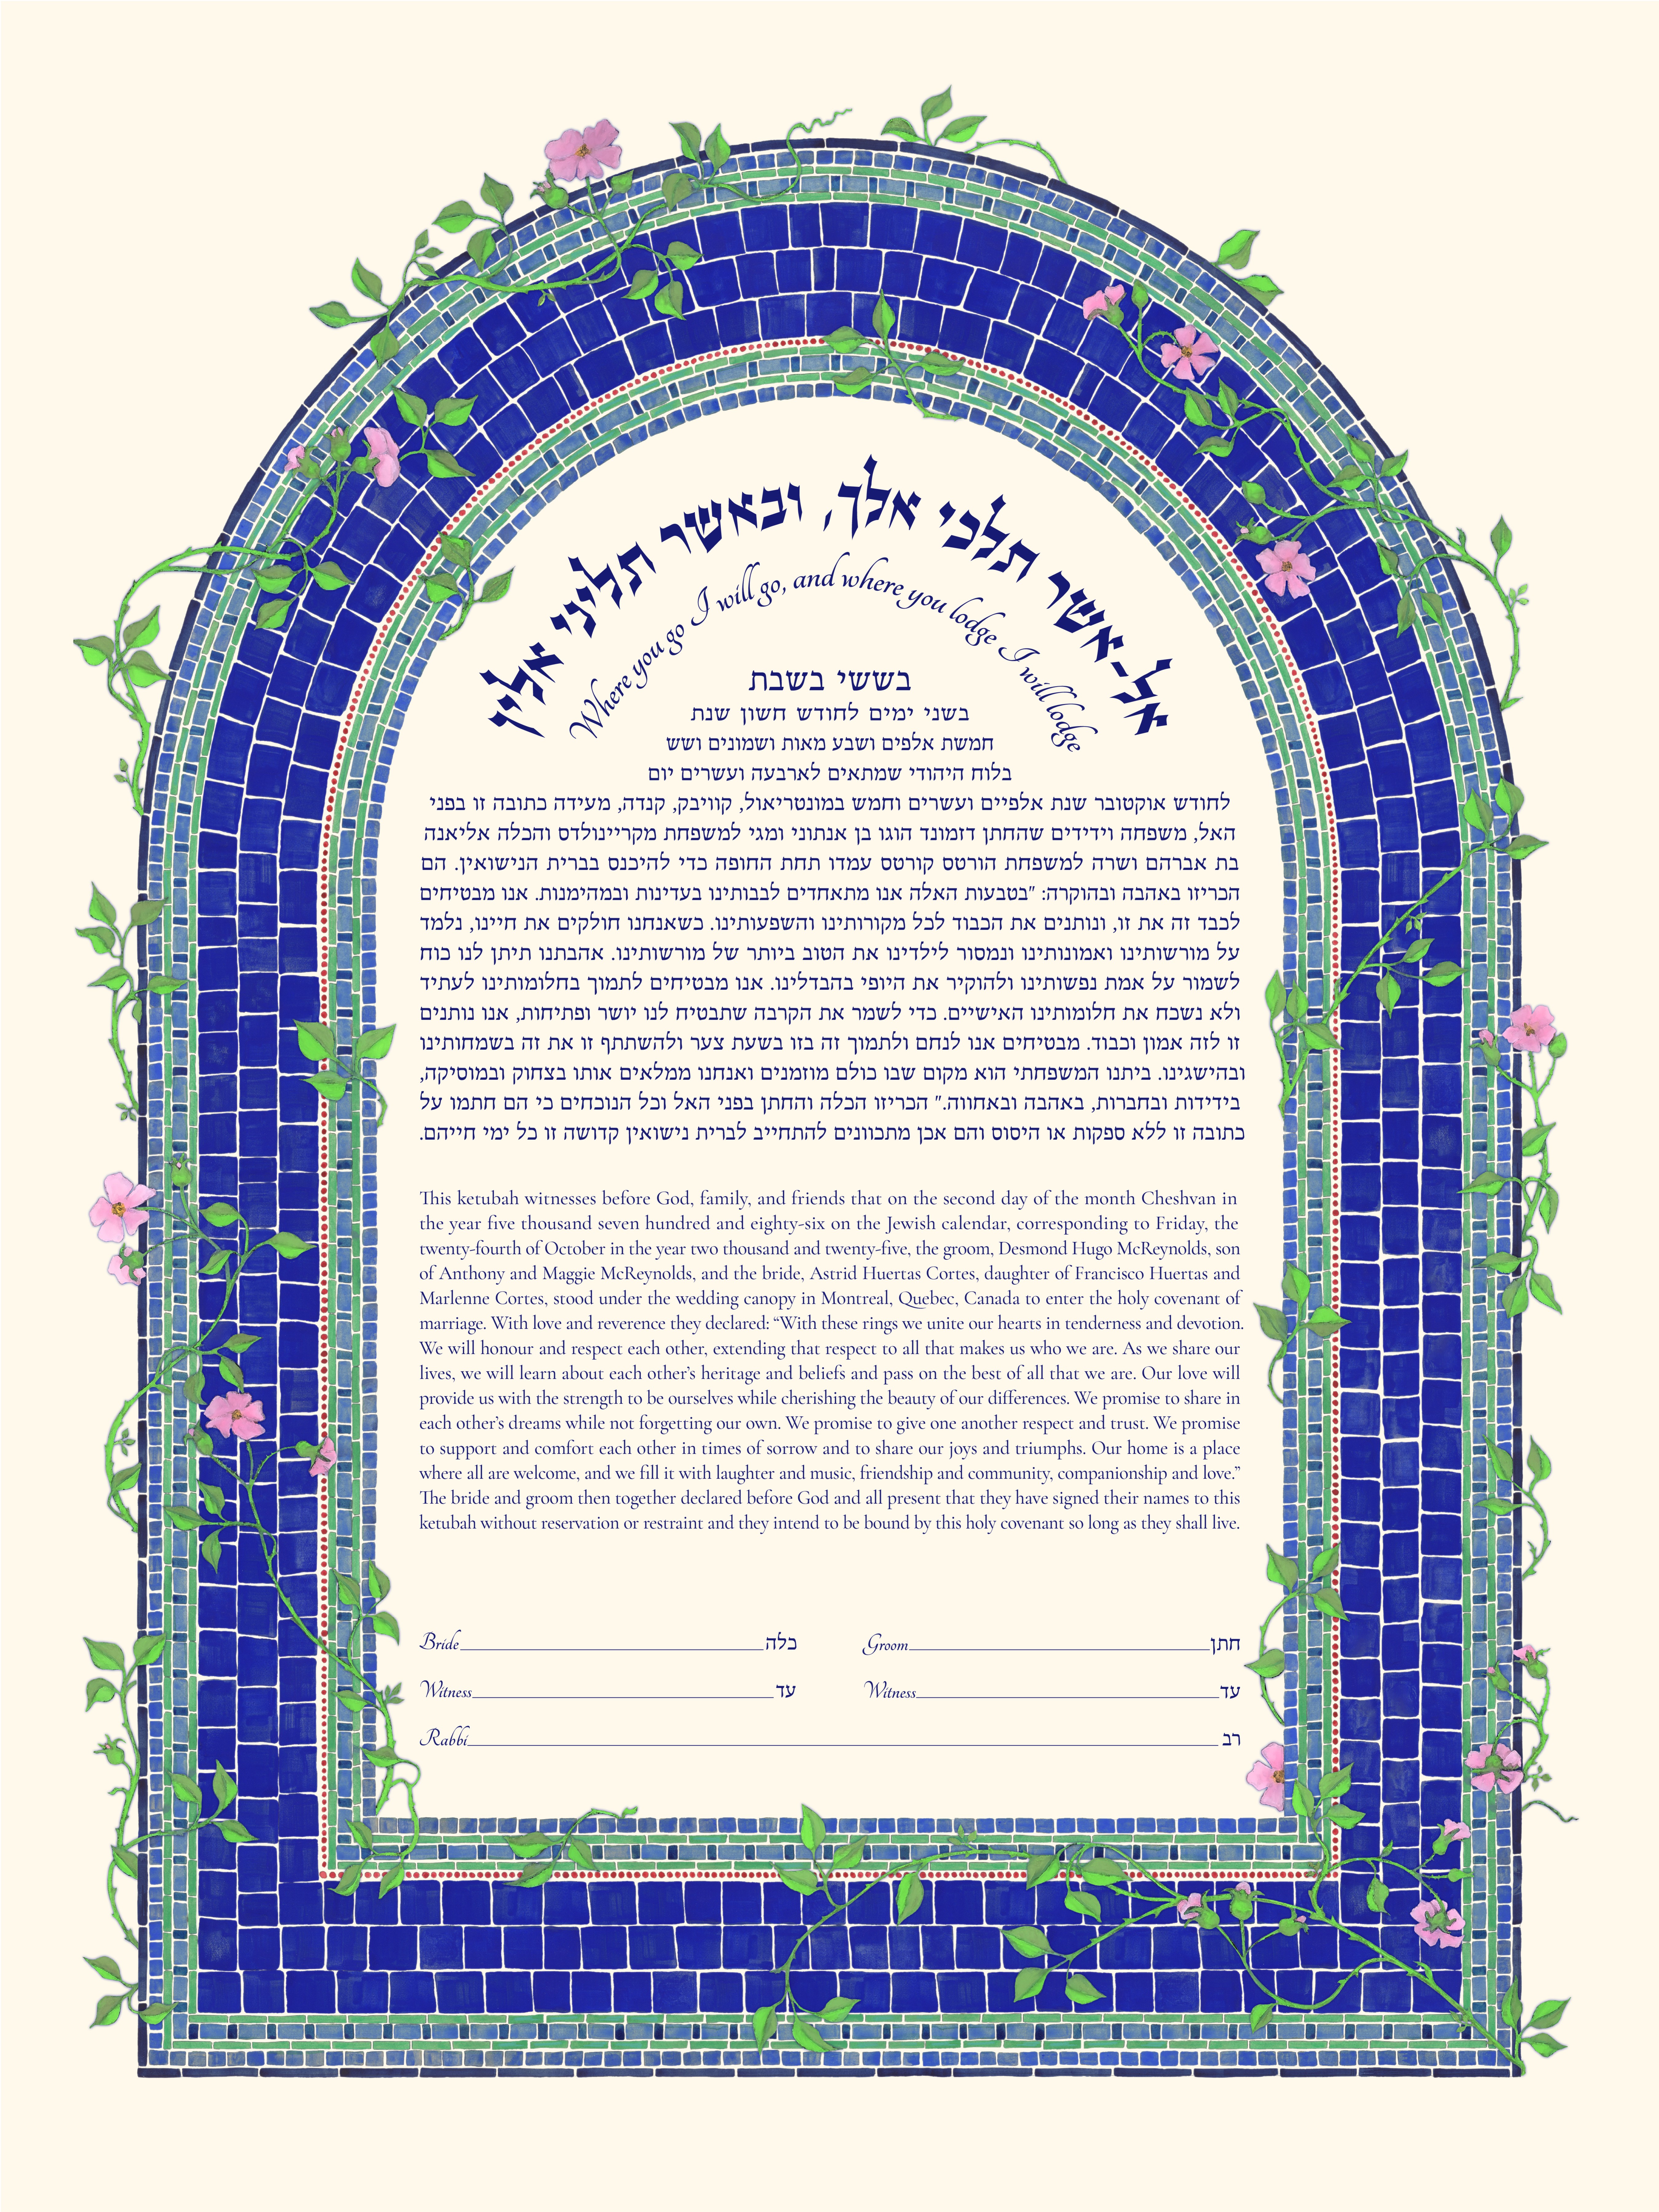 אל-אשר תלכי אלך, ובאשר תליני אלין
Where you go I will go, and where you lodge I will lodge
בששי בשבת
בשני ימים לחודש חשון שנת
חמשת אלפים ושבע מאות ושמונים ושש
בלוח היהודי שמתאים לארבעה ועשרים יום
לחודש אוקטובר שנת אלפיים ועשרים וחמש במונטריאול, קוויבק, קנדה, מעידה כתובה זו בפני
האל, משפחה וידידים שהחתן דזמונד הוגו בן אנתוני ומגי למשפחת מקריינולדס והכלה אליאנה
בת אברהם ושרה למשפחת הורטס קורטס עמדו תחת החופה כדי להיכנס בברית הנישואין. הם
הכריזו באהבה ובהוקרה: "בטבעות האלה אנו מתאחדים לבבותינו בעדינות ובמהימנות. אנו מבטיחים
לכבד זה את זו, ונותנים את הכבוד לכל מקורותינו והשפעותינו. כשאנחנו חולקים את חיינו, נלמד
על מורשותינו ואמונותינו ונמסור לילדינו את הטוב ביותר של מורשותינו. אהבתנו תיתן לנו כוח
לשמור על אמת נפשותינו ולהוקיר את היופי בהבדלינו. אנו מבטיחים לתמוך בחלומותינו לעתיד
ולא נשכח את חלומותינו האישיים. כדי לשמר את הקרבה שתבטיח לנו יושר ופתיחות, אנו נותנים
זו לזה אמון וכבוד. מבטיחים אנו לנחם ולתמוך זה בזו בשעת צער ולהשתתף זו את זה בשמחותינו
ובהישגינו. ביתנו המשפחתי הוא מקום שבו כולם מוזמנים ואנחנו ממלאים אותו בצחוק ובמוסיקה,
בידידות ובחברות, באהבה ובאחווה." הכריזו הכלה והחתן בפני האל וכל הנוכחים כי הם חתמו על
כתובה זו ללא ספקות או היסוס והם אכן מתכוונים להתחייב לברית נישואין קדושה זו כל ימי חייהם.
This ketubah witnesses before God, family, and friends that on the second day of the month Cheshvan in
the year five thousand seven hundred and eighty-six on the Jewish calendar, corresponding to Friday, the
twenty-fourth of October in the year two thousand and twenty-five, the groom, Desmond Hugo McReynolds, son
of Anthony and Maggie McReynolds, and the bride, Astrid Huertas Cortes, daughter of Francisco Huertas and
Marlenne Cortes, stood under the wedding canopy in Montreal, Quebec, Canada to enter the holy covenant of
marriage. With love and reverence they declared: “With these rings we unite our hearts in tenderness and devotion.
We will honour and respect each other, extending that respect to all that makes us who we are. As we share our
lives, we will learn about each other’s heritage and beliefs and pass on the best of all that we are. Our love will
provide us with the strength to be ourselves while cherishing the beauty of our differences. We promise to share in
each other’s dreams while not forgetting our own. We promise to give one another respect and trust. We promise
to support and comfort each other in times of sorrow and to share our joys and triumphs. Our home is a place
where all are welcome, and we fill it with laughter and music, friendship and community, companionship and love.”
The bride and groom then together declared before God and all present that they have signed their names to this
ketubah without reservation or restraint and they intend to be bound by this holy covenant so long as they shall live.
Bride כלה Groom חתן
Witness עד Witness עד
Rabbi רב